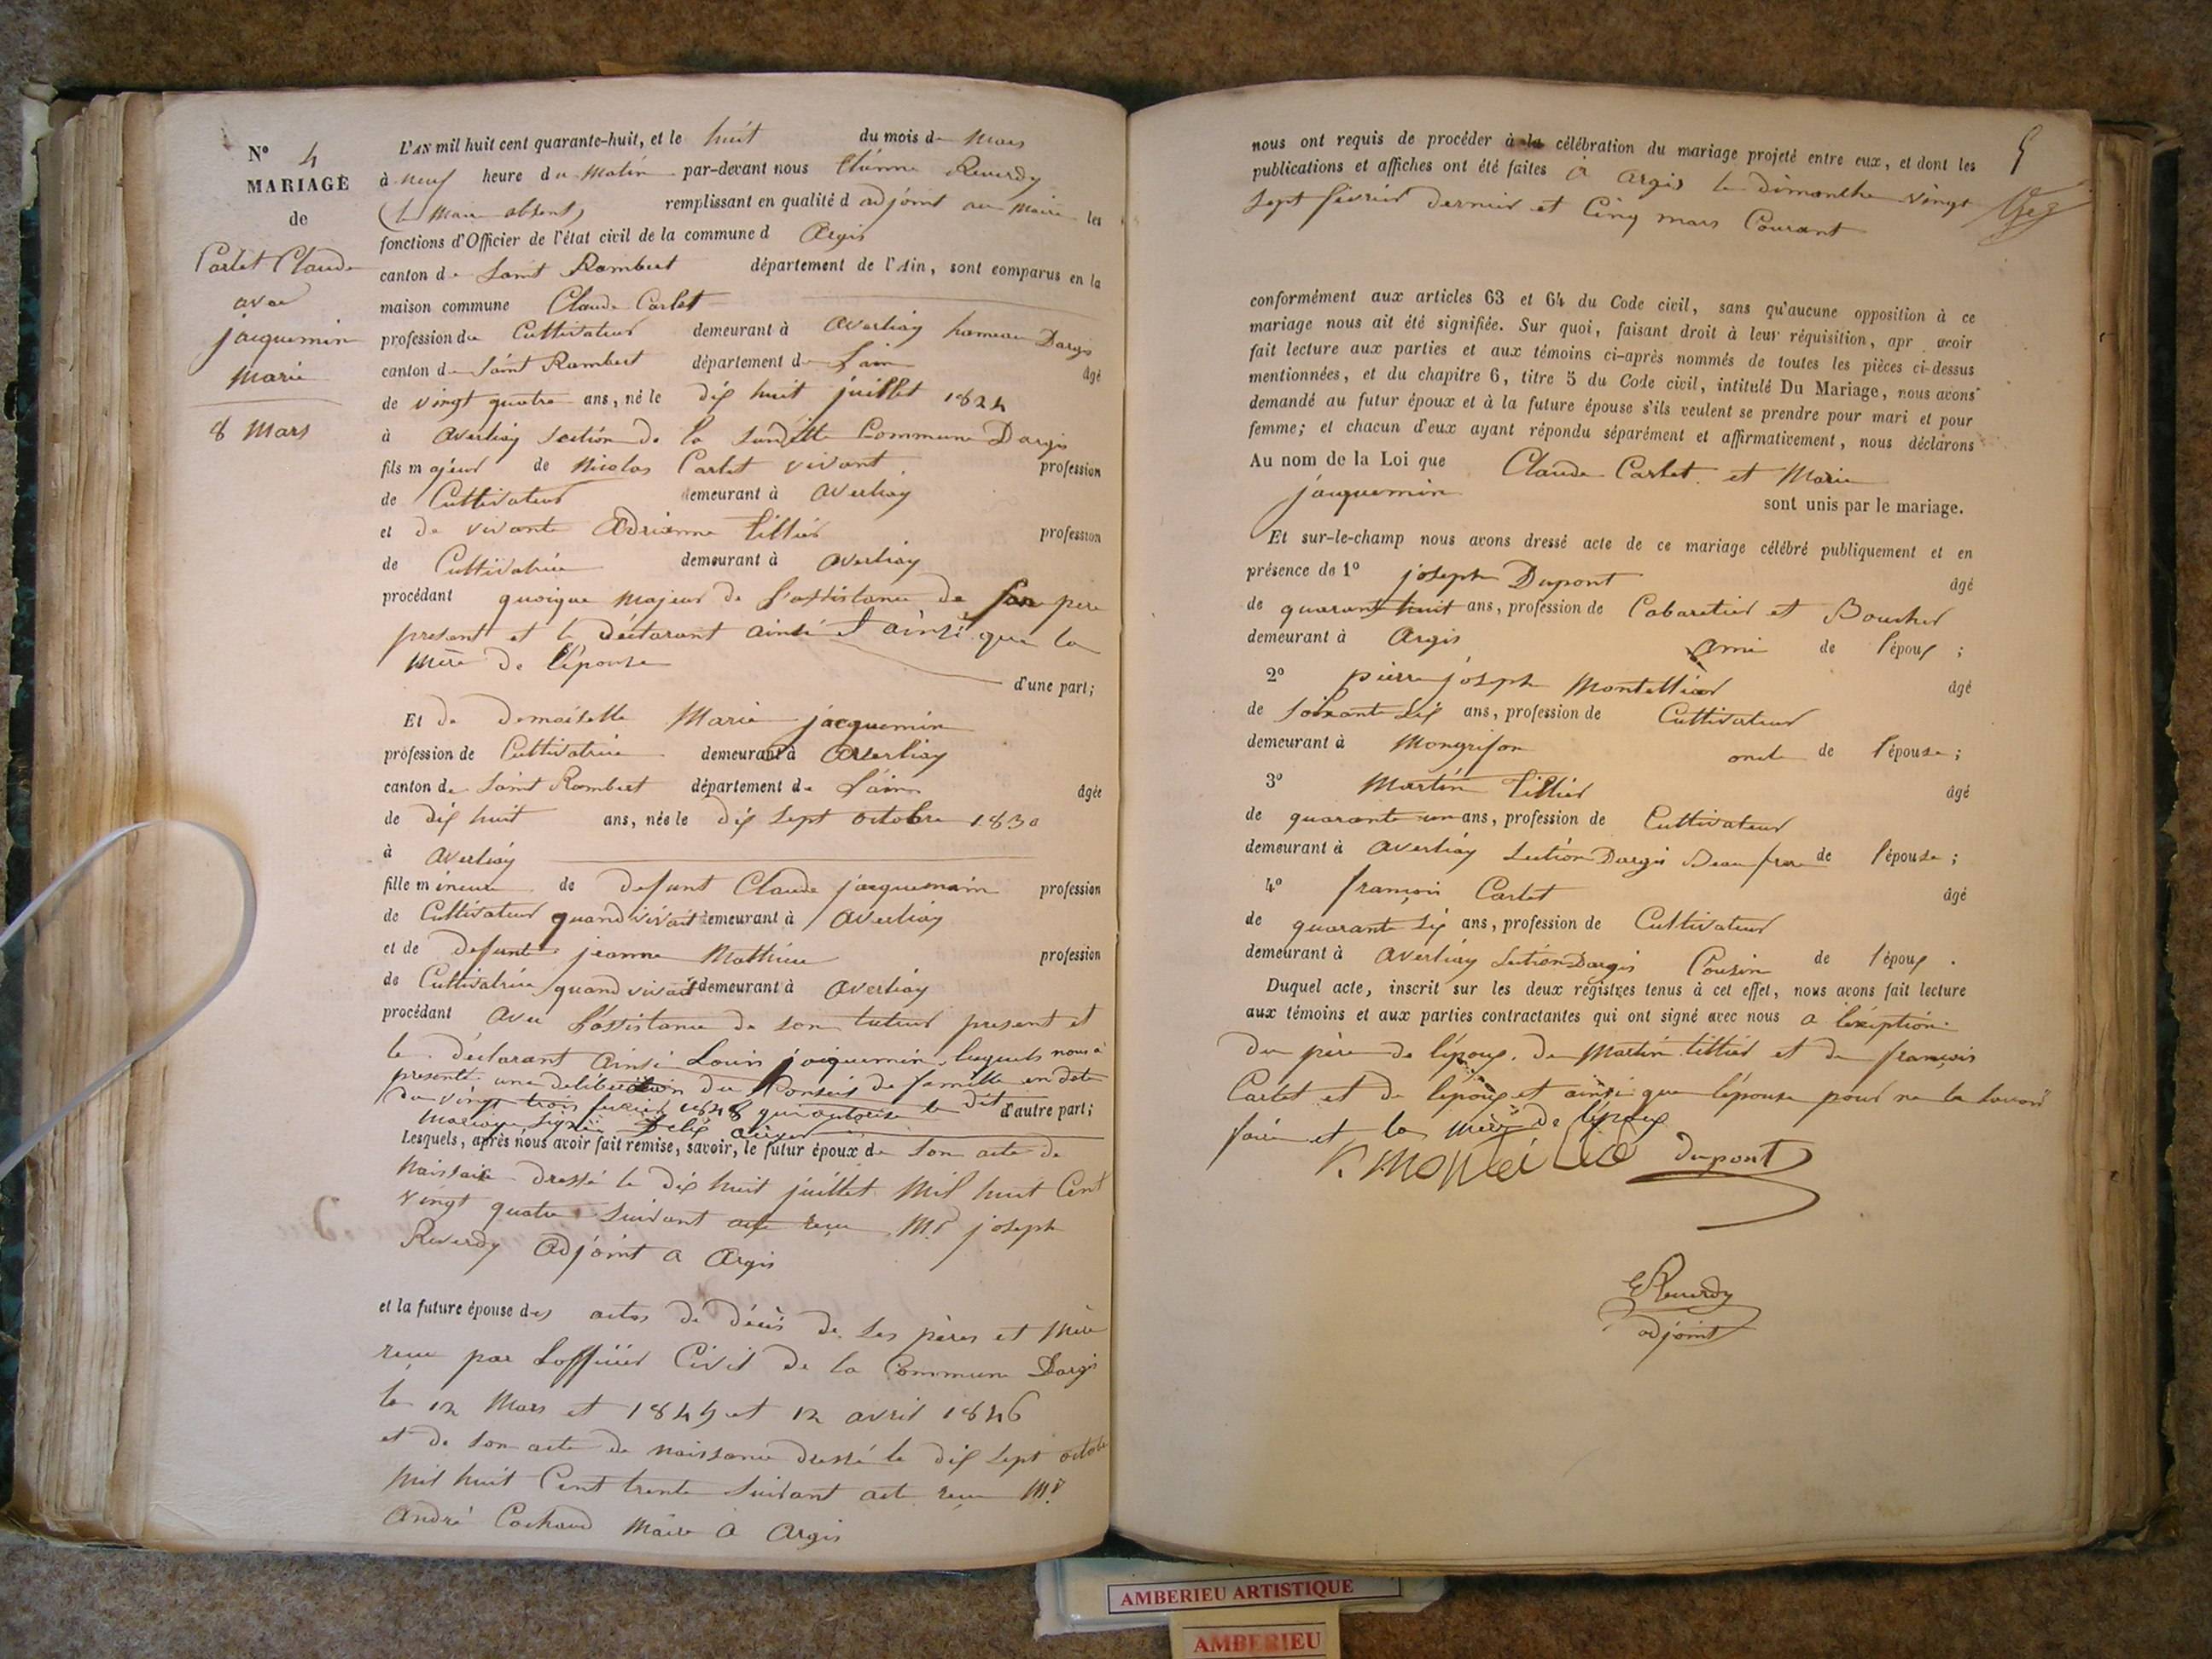 N° 4
MARIAGE
de
Carlet Claude
avec
jacquemin
Marie
8 Mars
L'AN mil huit cent quarante-huit, et le huit du mois de Mars
à neuf heure du Matin par-devant nous Etienne Reverdy
(le Maire absent) remplissant en qualité d adjoint au Maire les
fonctions d'Officier de l'état civil de la commune d Argis
canton de Saint Rambert département de l'Ain, sont comparus en la
maison commune Claude Carlet
profession de Cultivateur demeurant à Averliay hameau Dargis
canton de Saint Rambert département de Lain âgé
de vingt quatre ans, né le dix huit juillet 1824
à Averliay section de la susditte Commune Dargis
fils majeur de Nicolas Carlet vivant profession
de Cultivateur demeurant à Averliay
et de vivante Adrienne Tillier profession
de Cultivatrice demeurant à Averliay
procédant quoique Majeur de l'assistance de son pere
present et le déclarant ainsi et ainsi que la
Mère de l'épouse
d'une part;
Et de demoiselle Marie jacquemin
profession de Cultivatrice demeurant à Averliay
canton de Saint Rambert département de Lain âgée
de dix huit ans, née le dix sept octobre 1830
à Averliay
fille mineure de defunt Claude jacquemain profession
de Cultivateur quand vivait demeurant à Averliay
et de defunte jeanne Mathieu profession
de Cultivatrice quand vivait demeurant à Averliay
procédant avec l'assistance de son tuteur present et
le déclarant ainsi Louis jacquemin lesquels nous a
presenté une deliberation du Conseil de famille en date
du vingt trois fevrier 1848 qui autorise le dit d'autre part;
Mariage
Lesquels, après nous avoir fait remise, savoir, le futur époux de son acte de
Naissance dressé le dix huit juillet Mil huit Cent
vingt quatre suivant acte reçu M.r joseph
Reverdy adjoint a Argis
et la future épouse des actes de décès de ses pères et Mère
reçu par Lofficier Civil de la Commune Dargis
le 12 Mars et 1845 et 12 avril 1846
et de son acte de naissance dressé le dix sept octobre
Mil huit Cent trente suivant acte reçu M.r
André Cochand Maire a Argis
5
nous ont requis de procéder à la célébration du mariage projeté entre eux, et dont les
publications et affiches ont été faites à Argis le dimanche vingt
sept fevrier dernier et Cinq mars Courant
conformément aux articles 63 et 64 du Code civil, sans qu'aucune opposition à ce
mariage nous ait été signifiée. Sur quoi, faisant droit à leur réquisition, apr avoir
fait lecture aux parties et aux témoins ci-après nommés de toutes les pièces ci-dessus
mentionnées, et du chapitre 6, titre 5 du Code civil, intitulé Du Mariage, nous avons
demandé au futur époux et à la future épouse s'ils veulent se prendre pour mari et pour
femme; et chacun d'eux ayant répondu séparément et affirmativement, nous déclarons
Au nom de la Loi que Claude Carlet et Marie
jacquemin
sont unis par le mariage.
Et sur-le-champ nous avons dressé acte de ce mariage célébré publiquement et en
présence de 1° joseph Dupont âgé
de quarante huit ans, profession de Cabaretier et Boucher
demeurant à Argis ami de l'époux;
2° pierre joseph Montellier âgé
de soixante six ans, profession de Cultivateur
demeurant à Mongrifon oncle de l'épouse;
3° Martin Tillier âgé
de quarante un ans, profession de Cultivateur
demeurant à Averliay Section Dargis Beau frere de l'épouse;
4° françois Carlet âgé
de quarante six ans, profession de Cultivateur
demeurant à Averliay Section Dargis Cousin de l'époux.
Duquel acte, inscrit sur les deux registres tenus à cet effet, nous avons fait lecture
aux témoins et aux parties contractantes qui ont signé avec nous a l'exeption
du père de l'époux. de Martin tillier et de françois
Carlet et de l'époux et ainsi que l'épouse pour ne la savoir
faire et la Mère de l'époux
dupont
E Reverdy
adjoint
AMBERIEU ARTISTIQUE
AMBERIEU